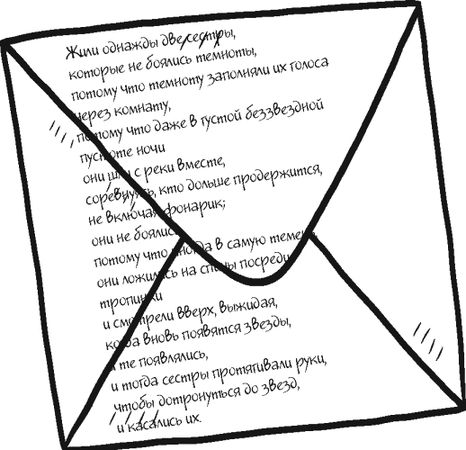 Жили однажды две сестры,
которые не боялись темноты,
потому что темноту заполняли их голоса
через комнату,
потому что даже в густой беззвездной
пустоте ночи
они шли с реки вместе,
соревнуясь, кто дольше продержится,
не включая фонарик;
они не боялись,
потому что иногда в самую темень
они ложились на спины посреди
тропинки
и смотрели вверх, выжидая,
когда вновь появятся звезды,
и те появлялись,
и тогда сестры протягивали руки,
чтобы дотронуться до звезд,
и касались их.